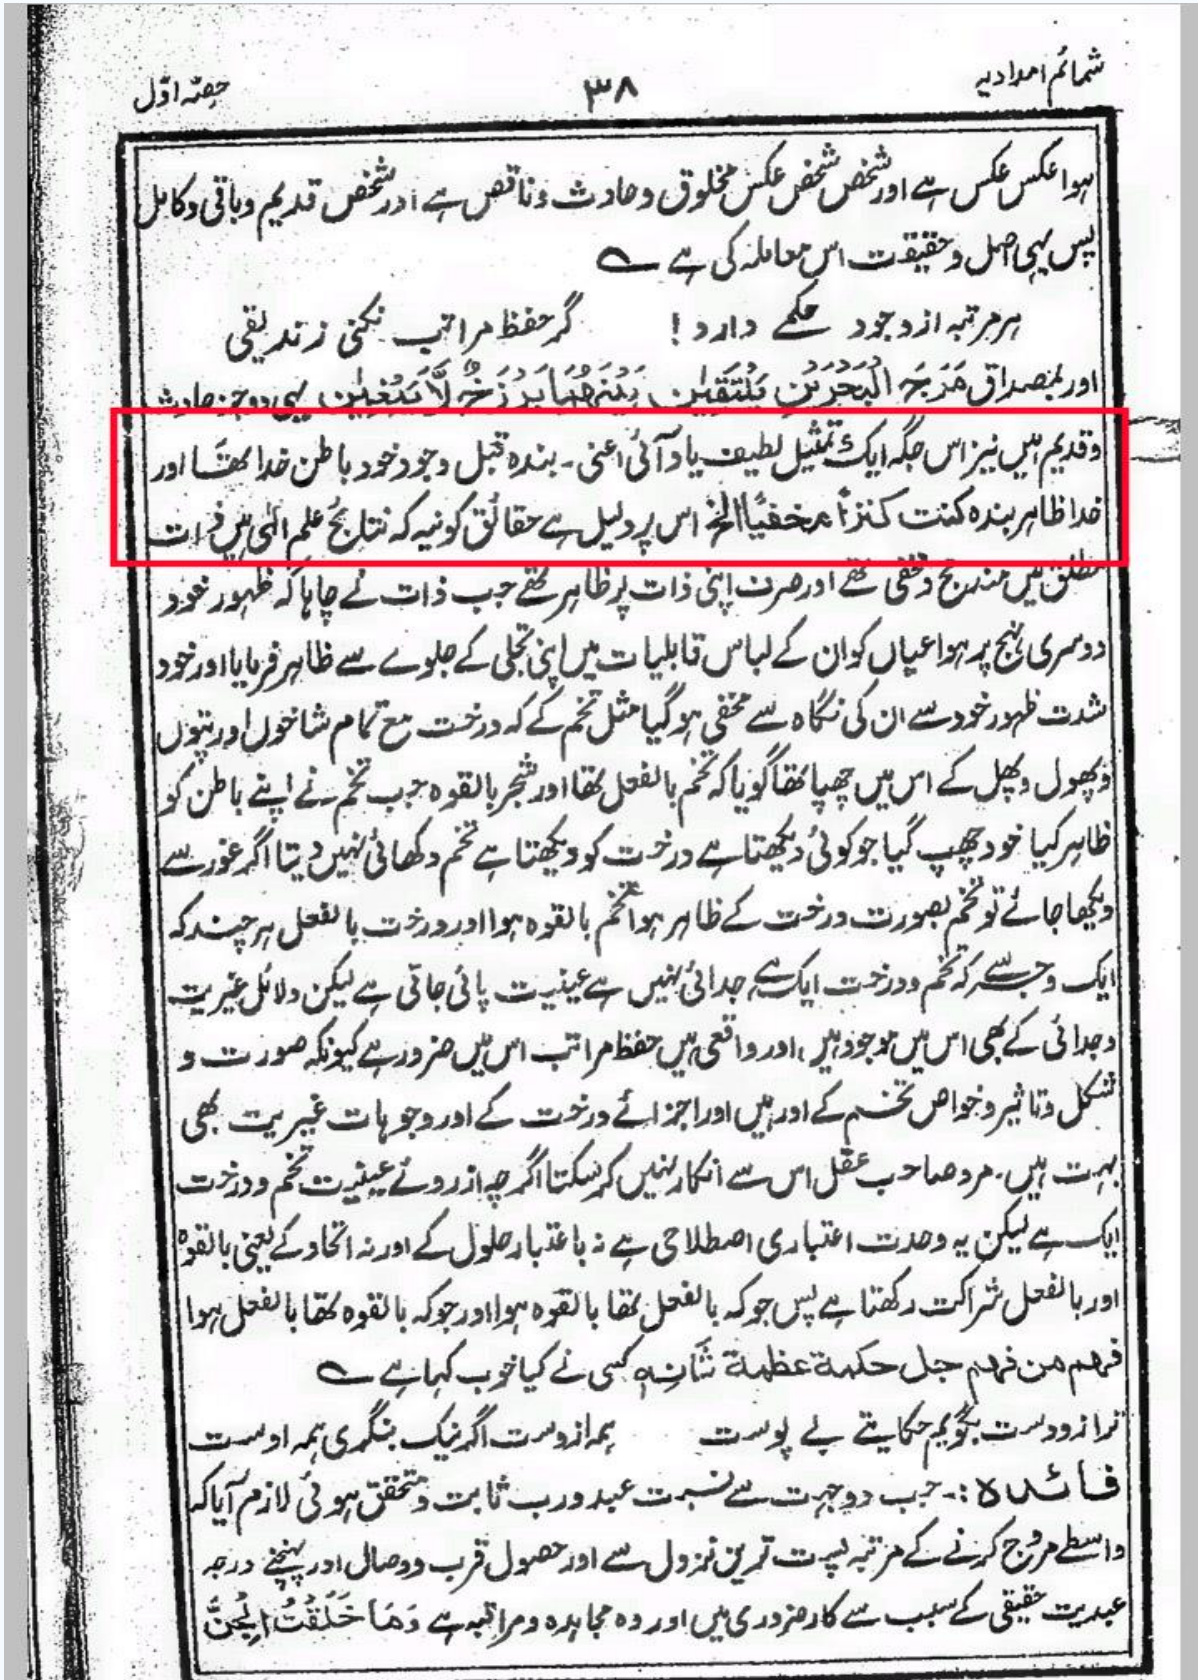 شمائم امدادیہ
۳۸
حصہ اوّل
ہوا عکس عکس ہے اور شخص شخص عکس مخلوق و حادث و ناقص ہے اور شخص قدیم و باقی و کامل
پس یہی اصل و حقیقت اس معاملہ کی ہے ؎
ہر مرتبہ از وجود حکمے دارد! گر حفظ مراتب نکنی زندیقی
اور بمصداق مَرَجَ الْبَحْرَيْنِ يَلْتَقِيٰنِ بَيْنَهُمَا بَرْزَخٌ لَّا يَبْغِيٰنِ یہی دو جز حادث
و قدیم ہیں نیز اس جگہ ایک تمثیل لطیف یاد آئی اعنی۔ بندہ قبل وجود خود باطن خدا تھا اور
خدا ظاہر بندہ کنت کنزاً مخفیًا الخ اس پر دلیل ہے حقائق کونیہ کہ نتائج علم الٰہی ہیں ذات
مطلق میں مندرج و مخفی تھے اور صرف اپنی ذات پر ظاہر تھے جب ذات نے چاہا کہ ظہور خود
دوسری نہج پر ہو اعیاں کو ان کے لباس قابلیات میں اپنی تجلی کے جلوے سے ظاہر فرمایا اور خود
شدت ظہور خود سے ان کی نگاہ سے مخفی ہو گیا مثل تخم کے کہ درخت مع تمام شاخوں اور پتوں
و پھول و پھل کے اس میں چھپا تھا گویا کہ تخم بالفعل تھا اور شجر بالقوہ جب تخم نے اپنے باطن کو
ظاہر کیا خود چھپ گیا جو کوئی دیکھتا ہے درخت کو دیکھتا ہے تخم دکھائی نہیں دیتا اگر غور سے
دیکھا جائے تو تخم بصورت درخت کے ظاہر ہوا تخم بالقوہ ہوا اور درخت بالفعل ہر چند کہ
ایک وجہ سے کہ تخم و درخت ایک ہے جدائی نہیں ہے عینیت پائی جاتی ہے لیکن دلائل غیریت
و جدائی کے بھی اس میں موجود ہیں، اور واقعی ہیں حفظ مراتب اس میں ضرور ہے کیونکہ صورت و
شکل و تاثیر و خواص تخم کے اور ہیں اور اجزائے درخت کے اور وجوہات غیریت بھی
بہت ہیں۔ مرد صاحب عقل اس سے انکار نہیں کر سکتا اگرچہ از روئے عینیت تخم و درخت
ایک ہے لیکن یہ وحدت اعتباری اصطلاحی ہے نہ باعتبار حلول کے اور نہ اتحاد کے یعنی بالقوہ
اور بالفعل شراکت رکھتا ہے پس جو کہ بالفعل تھا بالقوہ ہوا اور جو کہ بالقوہ تھا بالفعل ہوا
فہم من فہم جل حکمۃ عظمۃ شَانُہٗ کسی نے کیا خوب کہا ہے ؎
ترا ز دوست بگویم حکایتے بے پوست ہمہ ازوست اگر نیک بنگری ہمہ اوست
فائدہ:۔ جب دو جہت سے نسبت عبد و رب ثابت و متحقق ہوئی لازم آیا کہ
واسطے عروج کرنے کے مرتبہ پست ترین نزول سے اور حصول قرب و وصال اور پہنچنے درجہ
عبدیت حقیقی کے سبب سے کار ضروری ہیں اور وہ مجاہدہ و مراقبہ ہے وَمَا خَلَقْتُ الْجِنَّ